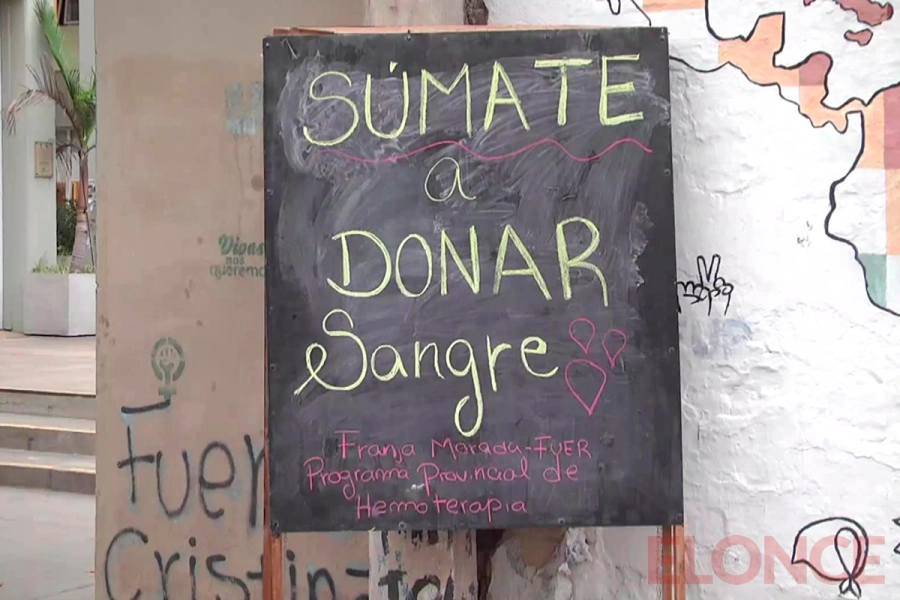 SÚMATE
a
DONAR
Sangre
Franja Morada-FUER
Programa Provincial de
Hemoterapia
Vivas
nos
queremos
Fuer
ELONCE